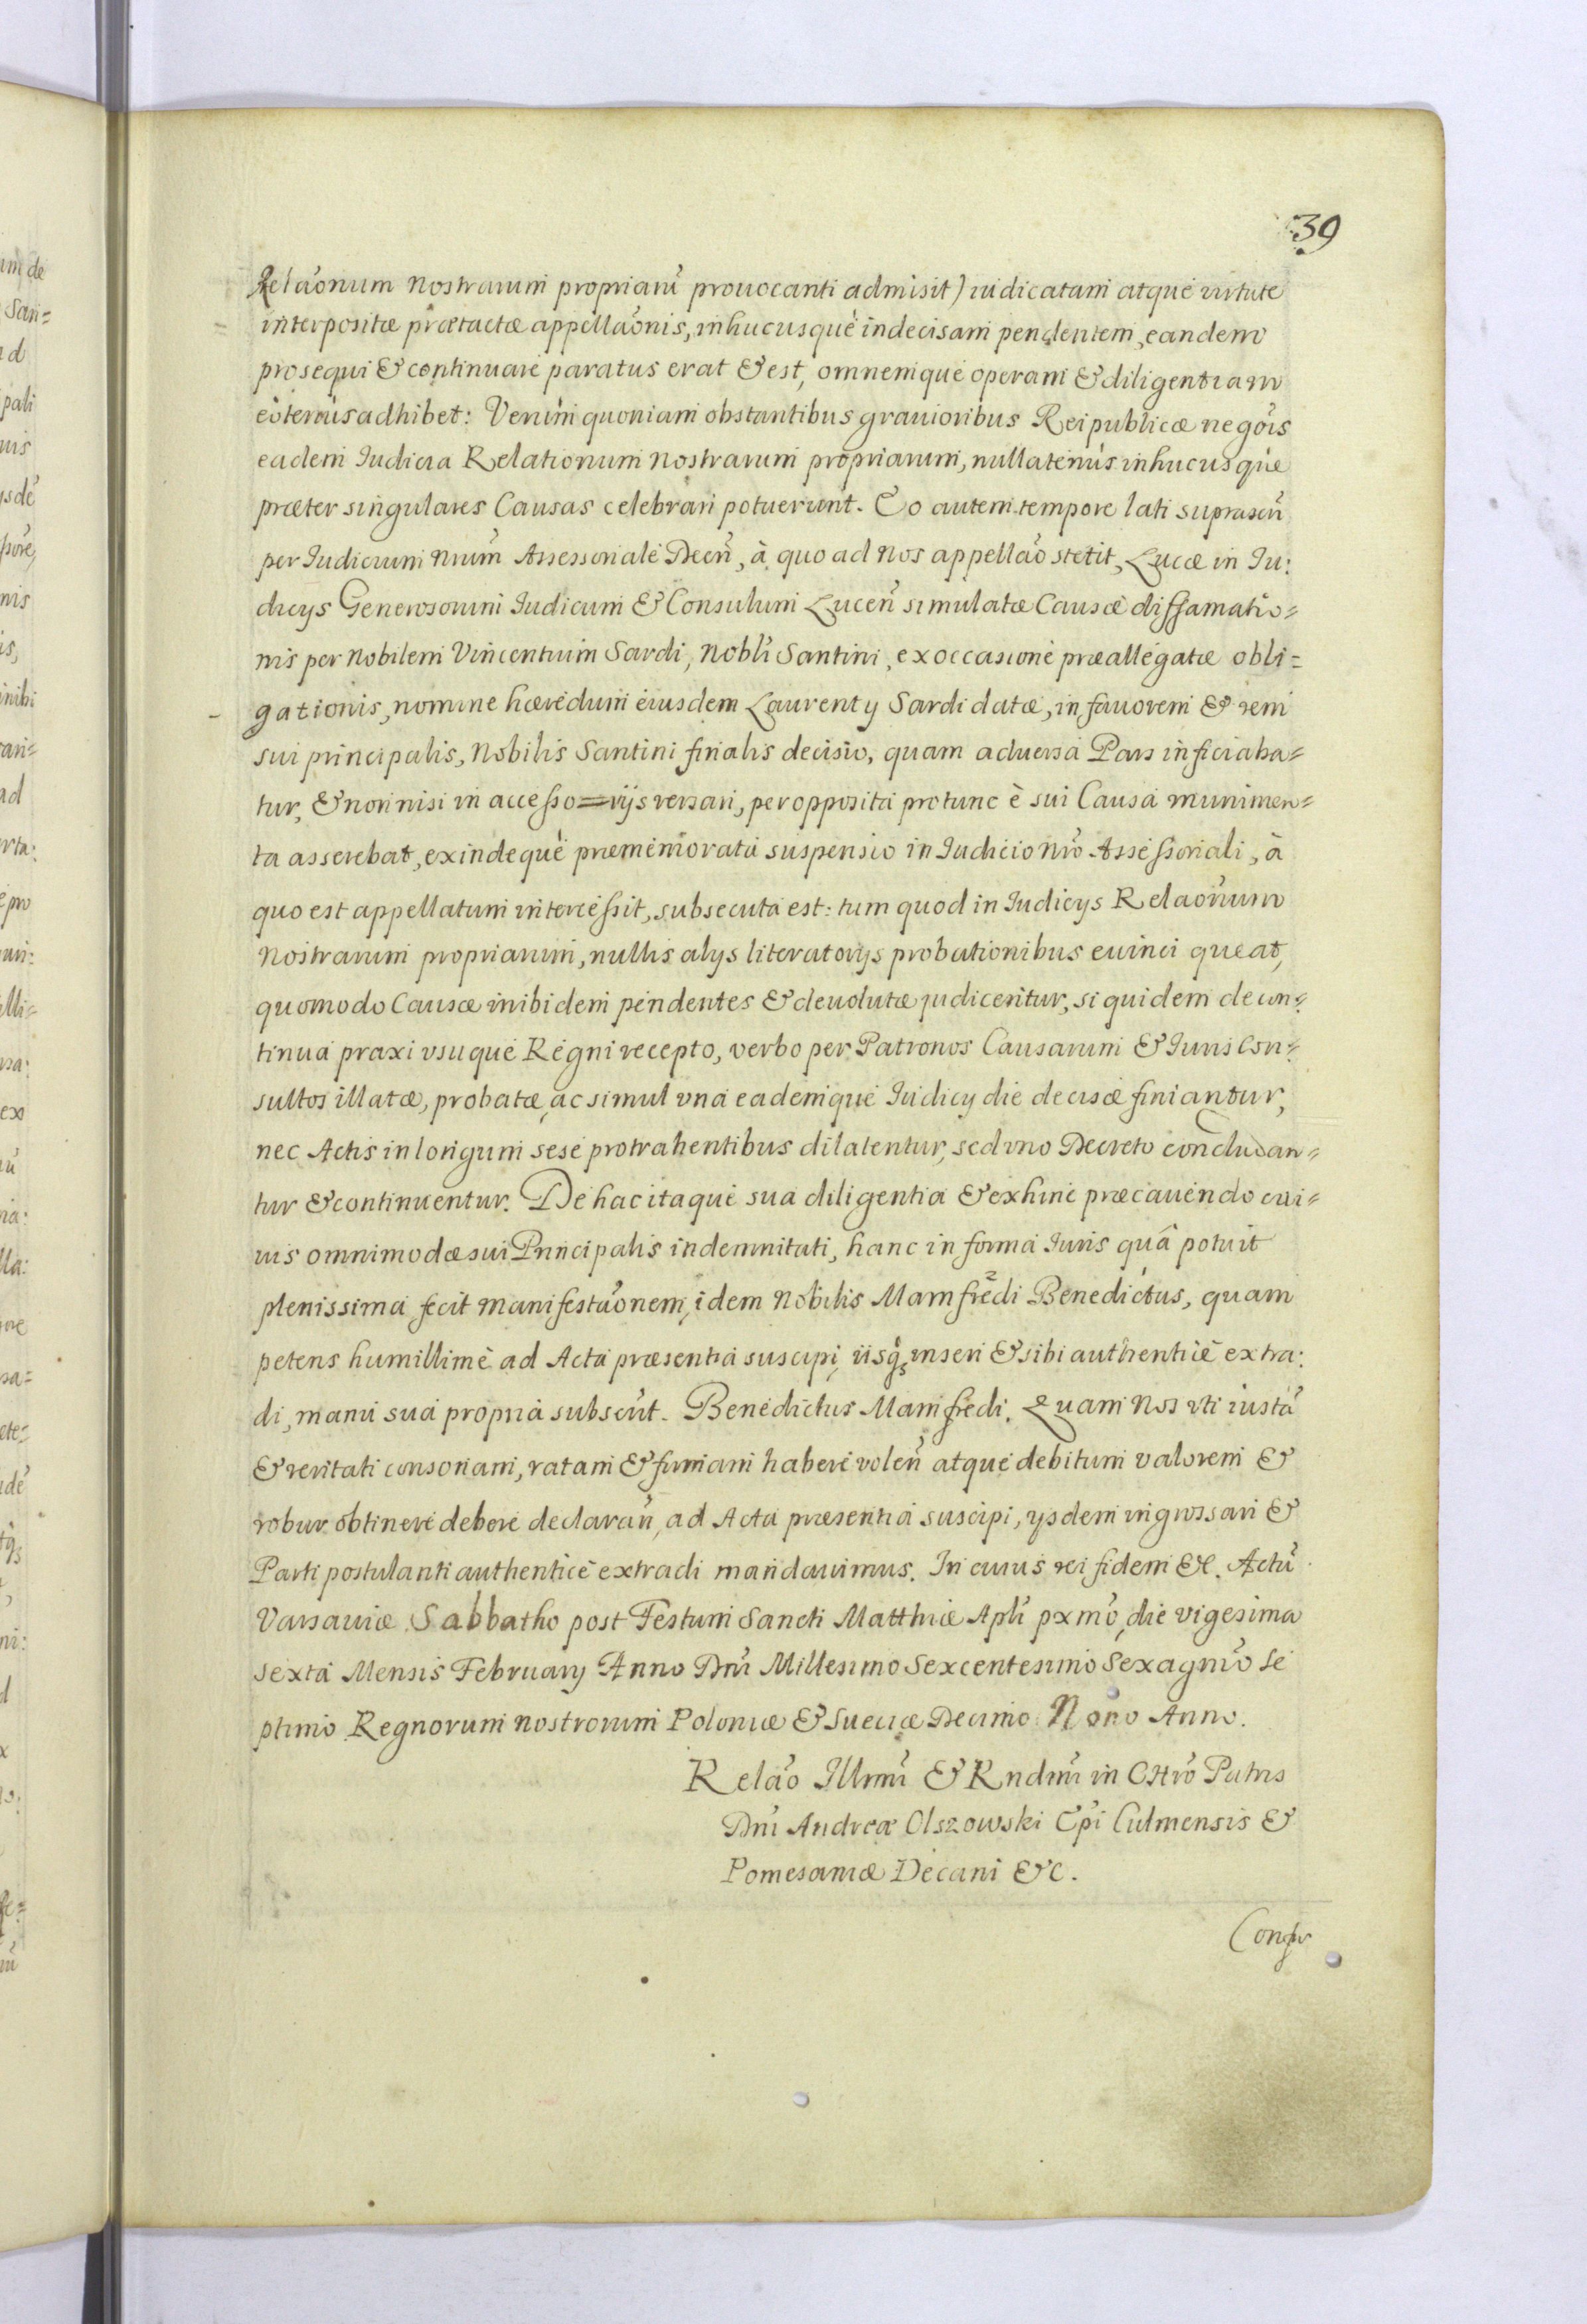 39
Relaõnum nostrarum propriarũ prouocanti admisit) iudicatam atque virtute
interpositæ prætactæ appellaõnis, inhucusquè indecisam pendentem, eandem
prosequi & continuare paratus erat & est, omnemque operam & diligentiam
eòtenus adhibet: Verùm quoniam obstantibus grauioribus Reipublicæ negõis
eadem Iudicia Relationum nostrarum propriarum, nullatenùs inhucusque
præter singulares Causas celebrari potuerunt. Eo autem tempore lati suprascrñ
per Iudicium nrũm Assessoriale Decrñ, à quo ad Nos appellaõ stetit, Lucæ in Iu:
dicys Generosorum Iudicum & Consulum Luceñ simulatæ Causæ diffamatio=
nis per Nobilem Vincentium Sardi, Nobli Santini, ex occasione præallegatæ obli=
gationis, nomine hæredum eiusdem Laurenty Sardi datæ, in fauorem & rem
sui principalis, Nobilis Santini finalis decisio, quam aduersa Pars inficiaba=
tur, & non nisi in accesso=rijs versari, per opposita protunc è sui Causa munimen=
ta asserebat, exindequè præmemorata suspensio in Iudicio nrõ Assessoriali, à
quo est appellatum intercessit, subsecuta est: tum quod in Iudicys Relaõnum
nostrarum propriarum, nullis alys literatorys probationibus euinci queat,
quomodo Causæ inibidem pendentes & deuolutæ judicentur, siquidem de con=
tinua praxi vsuque Regni recepto, verbo per Patronos Causarum & Iuris Con=
sultos illatæ, probatæ, ac simul vna eademque Iudicy die decisæ finiantur,
nec Actis in longum sese protrahentibus dilatentur, sed vno Decreto concludan=
tur & continuentur. De hac itaque sua diligentia & exhinc præcauendo cui=
uis omnimodæ sui Principalis indemnitati, hanc in forma Iuris quâ potuit
plenissima fecit manifestaõnem, idem Nobilis Mamfredi Benedictus, quam
petens humillimè ad Acta præsentia suscipi, iisq; inseri & sibi authenticè extra:
di, manu sua propria subscrt. Benedictus Mamfredi. Quam Nos vti iustã
& veritati consonam, ratam & firmam habere voleñ atque debitum valorem &
robur obtinere debere declarañ, ad Acta præsentia suscipi, ysdem ingrossari &
Parti postulanti authenticè extradi mandauimus. In cuius rei fidem &c. Actũ
Varsauiæ Sabbatho post Festum Sancti Matthiæ Apli pxmõ, die vigesima
sexta Mensis February Anno Dni Millesimo Sexcentesimo Sexagmõ Se
ptimo Regnorum nostrorum Poloniæ & Sueciæ Decimo Nono Anno.
Relaõ Illmi & Rndmi in Chrõ Patris
Dni Andreæ Olszowski Epi Culmensis &
Pomesaniæ Decani &c.